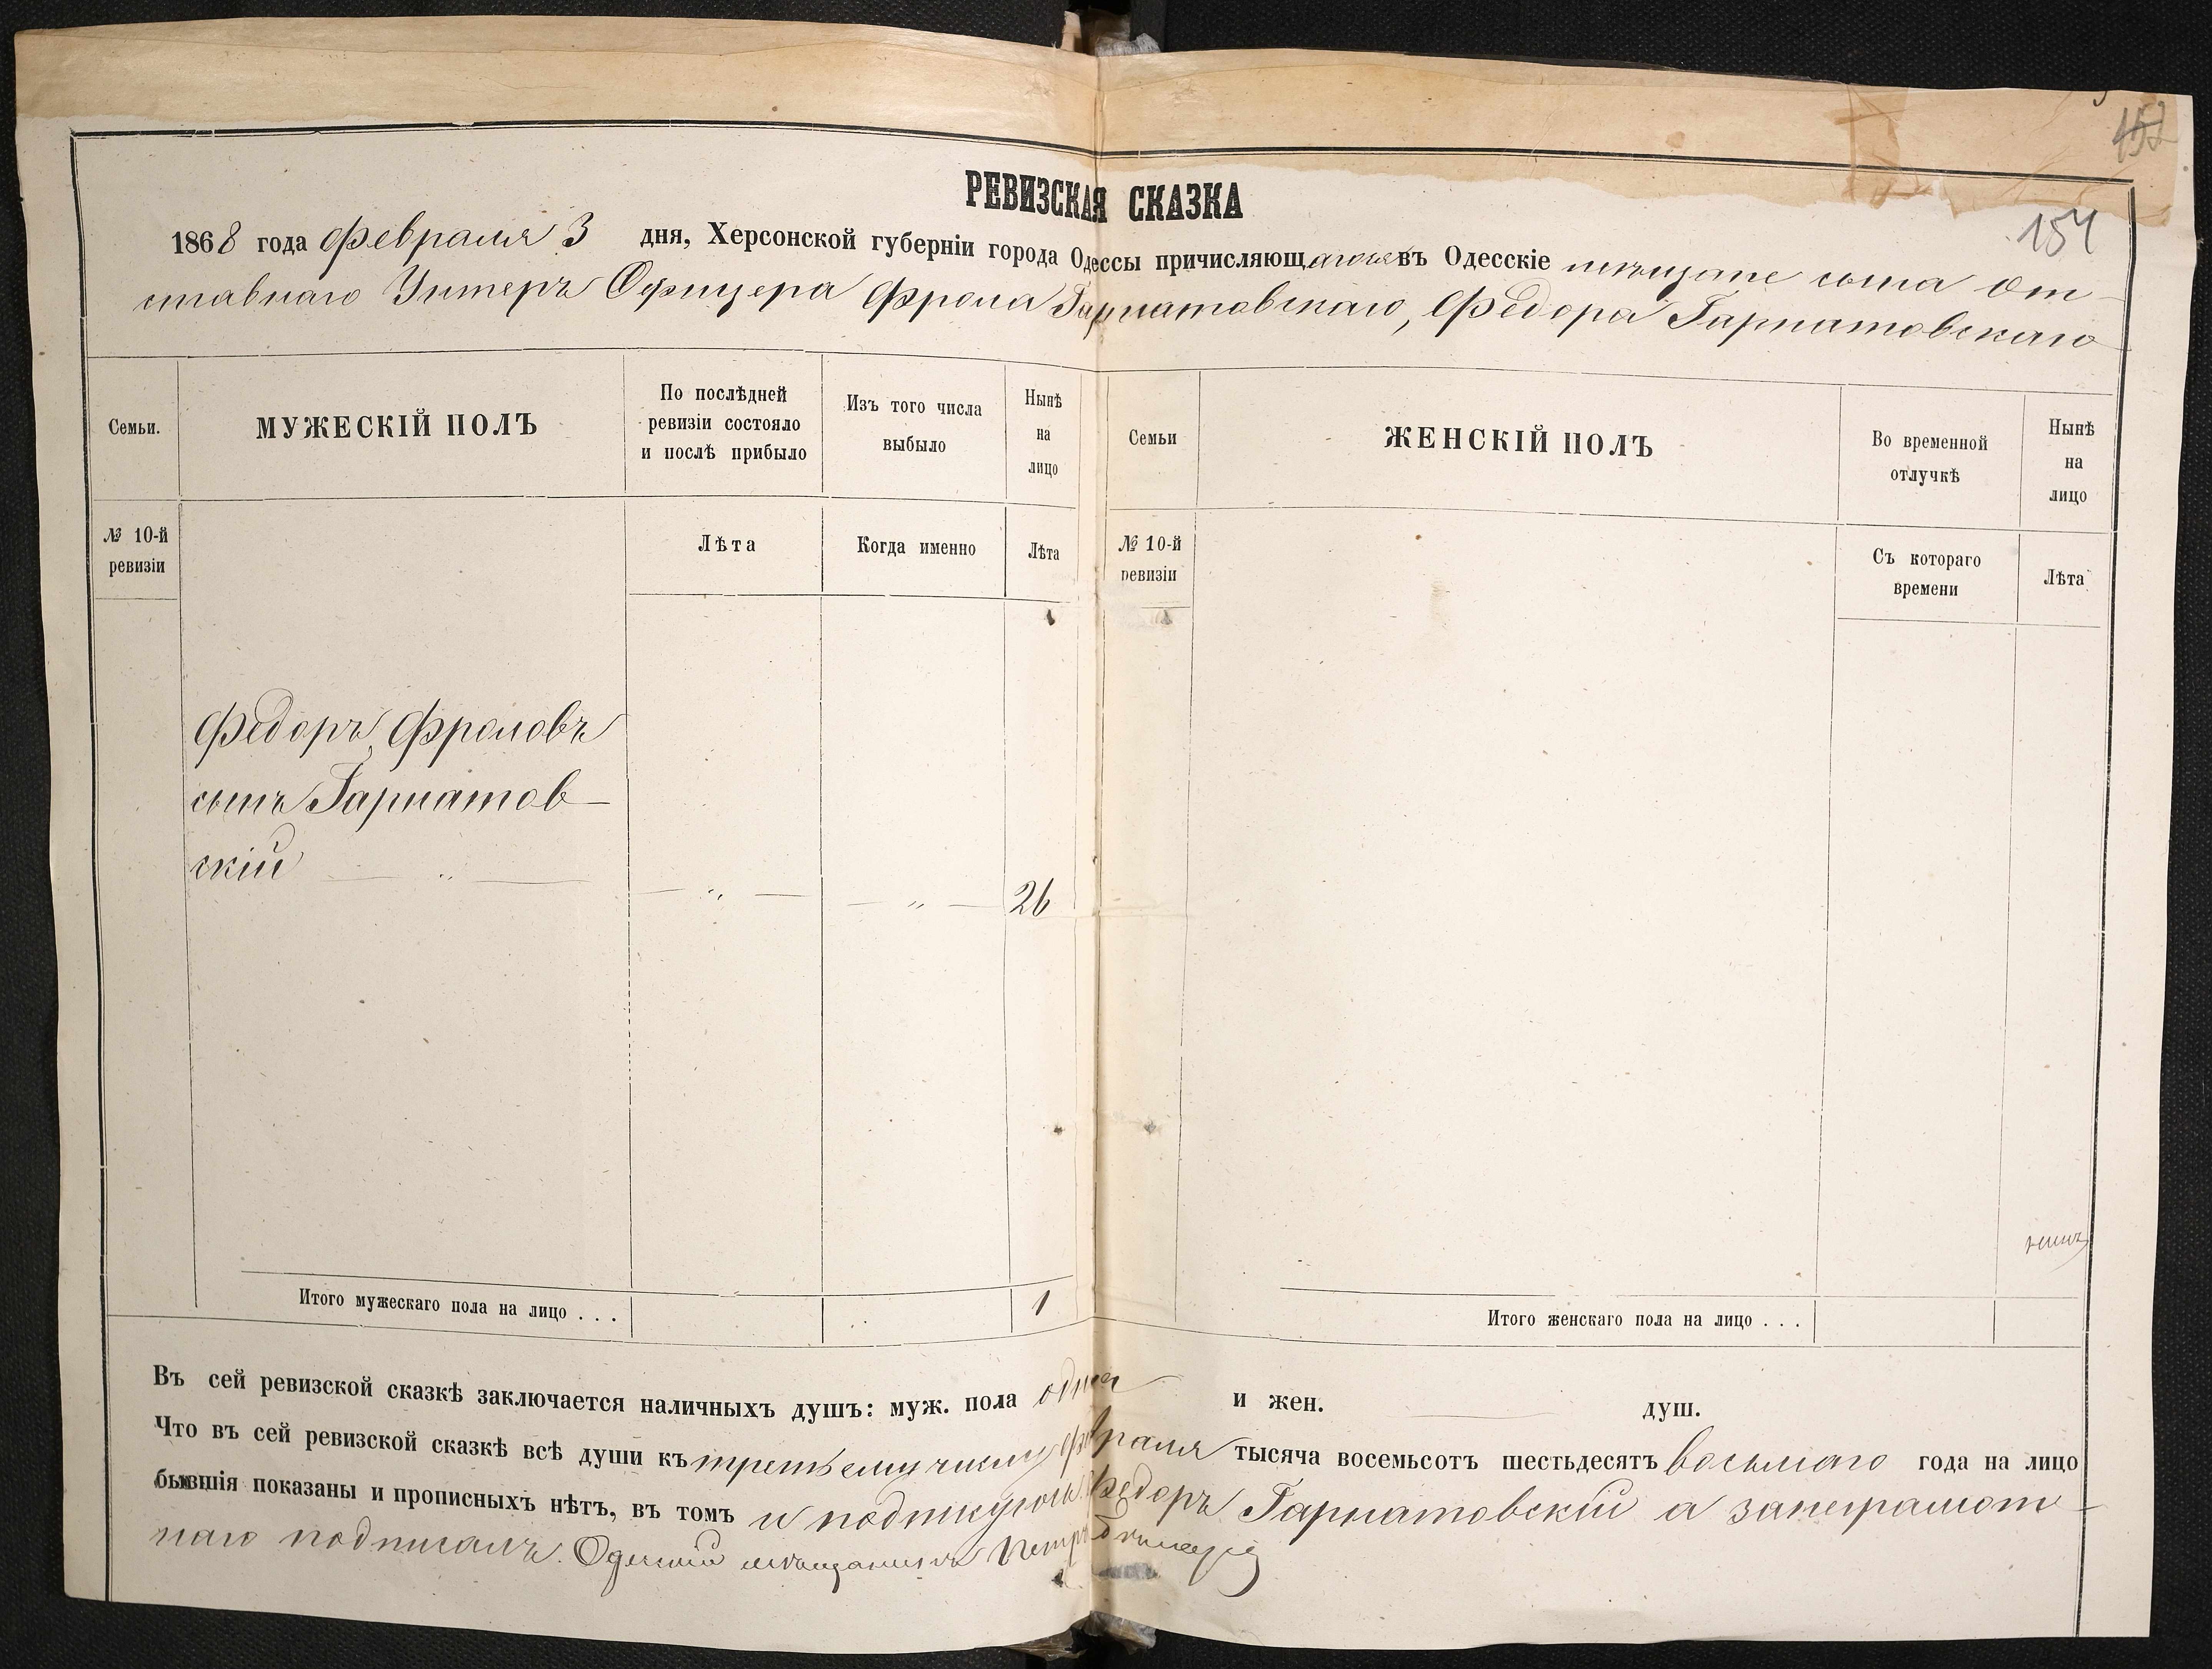 152
РЕВИЗСКАЯ СКАЗКА
154
1868 года Февраля 3 дня, Херсонской губерніи города Одессы причисляющагося въ Одесскіе мѣщане сына От-
ставнаго Унтеръ Офицера Фрола Гарнатовскаго, Федора Гарнатовскаго
Семьи.
МУЖЕСКІЙ ПОЛЪ
По послѣдней
ревизіи состояло
и послѣ прибыло
Изъ того числа
выбыло
Нынѣ
на
лицо
Семьи
ЖЕНСКІЙ ПОЛЪ
Во временной
отлучкѣ
Нынѣ
на
лицо
№ 10-й
ревизіи
Лѣта
Когда именно
Лѣта
№ 10-й
ревизіи
Съ котораго
времени
Лѣта
Федоръ Фроловъ
сынъ Гарнатов-
скій — „ —
— „ —
— „ —
26
Итого мужескаго пола на лицо . . .
1
Итого женскаго пола на лицо . . .
Въ сей ревизской сказкѣ заключается наличныхъ душъ: муж. пола одна и жен. — душ.
Что въ сей ревизской сказкѣ всѣ души къ третьему числу Февраля тысяча восемьсотъ шестьдесятъ восьмаго года на лицо
бывшія показаны и прописныхъ нѣтъ, въ томъ и подпикуюсь Федоръ Гарнатовскій а занеграмот-
наго подписалъ. Одесскій мѣщанинъ Петръ